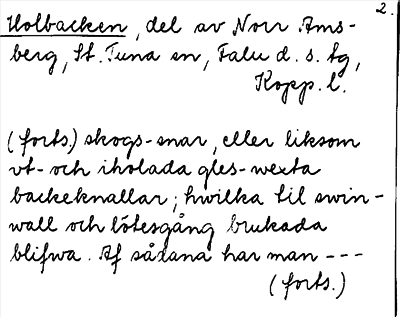 2.
Holbacken, del av Norr Ams-
berg, St. Tuna sn, Falu d. s. tg,
Kopp. l.
(forts.) skogs-snar, eller liksom
vt- och iholada gles-wexta
backeknallar; hwilka til swin-
wall och lötesgång brukada
blifwa. Af sådana har man ---
(forts.)